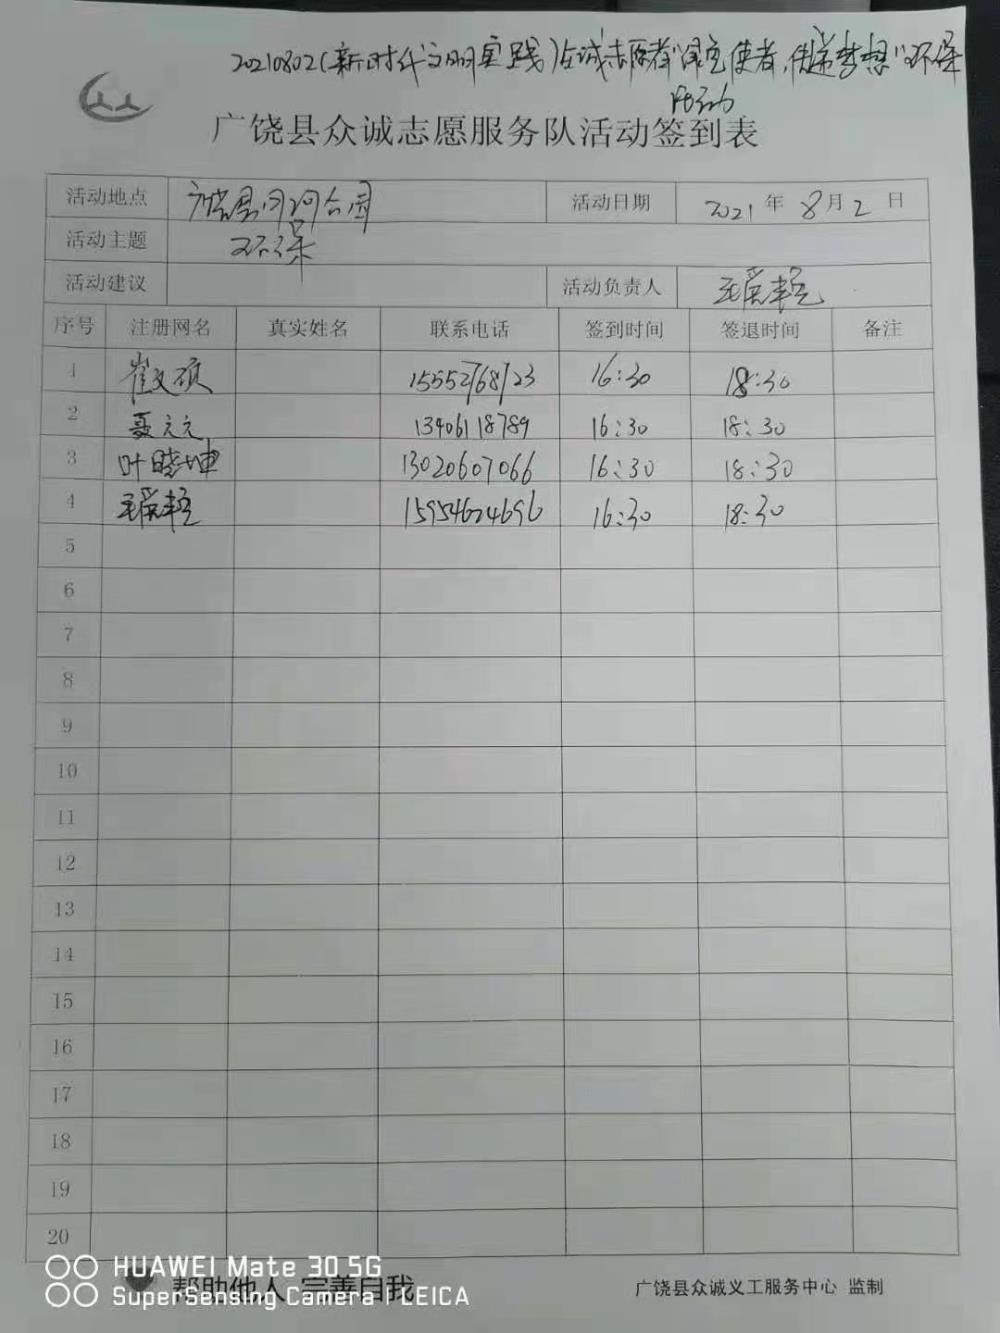 20210802(新时代文明实践)众诚志愿者"绿色使者,传递梦想"环保
活动
广饶县众诚志愿服务队活动签到表
活动地点 广饶县月河公园 活动日期 2021 年 8 月 2 日
活动主题 环保
活动建议 活动负责人
序号 注册网名 真实姓名 联系电话 签到时间 签退时间 备注
1 崔文硕 15552768123 16:30 18:30
2 聂元元 13406118789 16:30 18:30
3 叶晓坤 13020607066 16:30 18:30
4 15954624696 16:30 18:30
5
6
7
8
9
10
11
12
13
14
15
16
17
18
19
20
帮助他人 完善自我 广饶县众诚义工服务中心 监制
HUAWEI Mate 30 5G
SuperSensing Camera | LEICA